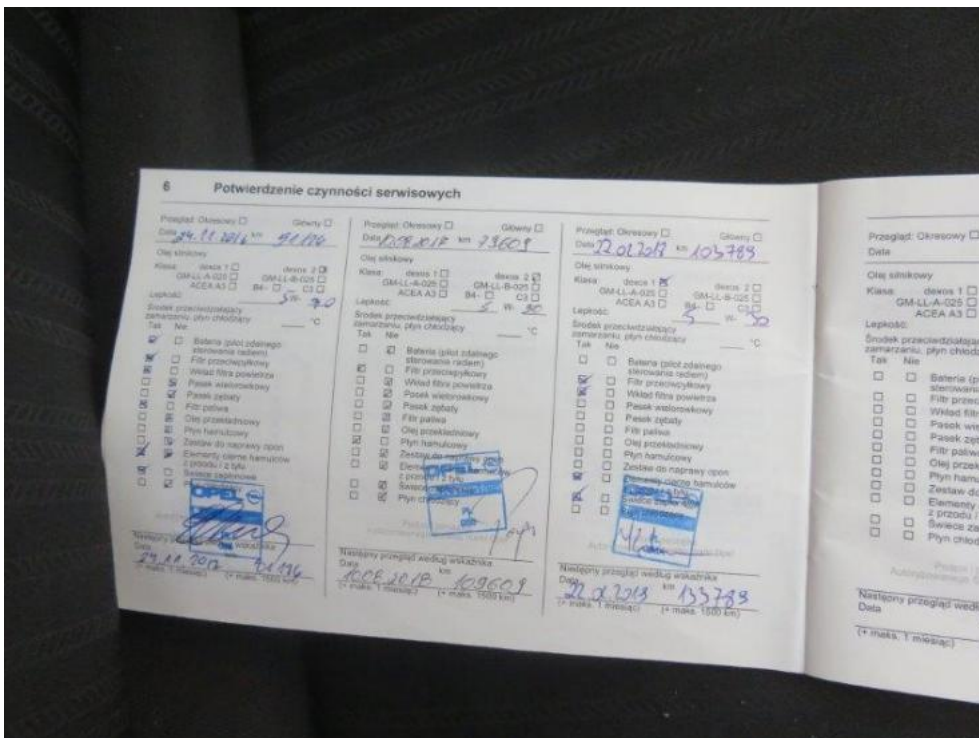 6 Potwierdzenie czynności serwisowych
Przegląd: Okresowy ☐ Główny ☐
Data 24.11.2016 km 51196
Olej silnikowy
Klasa: dexos 1 ☐ dexos 2 ☒
GM-LL-A-025 ☐ GM-LL-B-025 ☐
ACEA A3 ☐ B4- ☐ C3 ☐
Lepkość: 5 W-
Środek przeciwdziałający
zamarzaniu, płyn chłodzący °C
Tak Nie
Bateria (pilot zdalnego
sterowania radiem)
Filtr przeciwpyłkowy
Wkład filtra powietrza
Pasek wielorowkowy
Pasek zębaty
Filtr paliwa
Olej przekładniowy
Płyn hamulcowy
Zestaw do naprawy opon
Elementy cierne hamulców
z przodu i z tyłu
Świece zapłonowe
OPEL
Następny przegląd według wskaźnika
Data km
24.11.2017
(+ maks. 1 miesiąc) (+ maks. 1500 km)
Przegląd: Okresowy ☐ Główny ☐
Data 10.08.2017 km 79609
Olej silnikowy
Klasa: dexos 1 ☐ dexos 2 ☒
GM-LL-A-025 ☐ GM-LL-B-025 ☐
ACEA A3 ☐ B4- ☐ C3 ☐
Lepkość: 5 W- 30
Środek przeciwdziałający
zamarzaniu, płyn chłodzący °C
Tak Nie
Bateria (pilot zdalnego
sterowania radiem)
Filtr przeciwpyłkowy
Wkład filtra powietrza
Pasek wielorowkowy
Pasek zębaty
Filtr paliwa
Olej przekładniowy
Płyn hamulcowy
Zestaw do naprawy opon
z przodu i z tyłu
Świece
Płyn chłodzący
OPEL
Następny przegląd według wskaźnika
Data km
10.08.2018 109609
(+ maks. 1 miesiąc) (+ maks. 1500 km)
Przegląd: Okresowy ☐ Główny ☐
Data 22.01.2018 km 103789
Olej silnikowy
Klasa: dexos 1 ☒ dexos 2 ☐
GM-LL-A-025 ☐ GM-LL-B-025 ☐
ACEA A3 ☐ B4- ☐ C3 ☐
Lepkość: 5 W- 30
Środek przeciwdziałający
zamarzaniu, płyn chłodzący °C
Tak Nie
Bateria (pilot zdalnego
sterowania radiem)
Filtr przeciwpyłkowy
Wkład filtra powietrza
Pasek wielorowkowy
Pasek zębaty
Filtr paliwa
Olej przekładniowy
Płyn hamulcowy
Zestaw do naprawy opon
Elementy cierne hamulców
Świece zapłonowe
Następny przegląd według wskaźnika
Data km
22.01.2019 133789
(+ maks. 1 miesiąc) (+ maks. 1500 km)
Przegląd: Okresowy ☐
Data
Olej silnikowy
Klasa: dexos 1 ☐
GM-LL-A-025 ☐
ACEA A3 ☐
Lepkość:
Środek przeciwdziałają
zamarzaniu, płyn chłodz
Tak Nie
Bateria (p
sterowania
Filtr przec
Wkład filtr
Pasek wie
Pasek zęb
Filtr paliw
Olej przek
Płyn hamu
Zestaw do
Elementy
z przodu i
Świece za
Płyn chłod
Następny przegląd wedł
Data
(+ maks. 1 miesiąc)